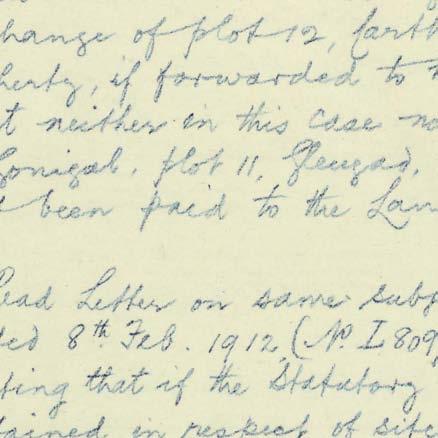 change of plot 12, Carth
herty, if forwarded to
t neither in this case no
Gonigal. plot 11, Glengad,
been paid to the Lan
Read Letter on same subj
ted 8th Feb. 1912, (No. I 809
ting that if the Statutory
tained in respect of site